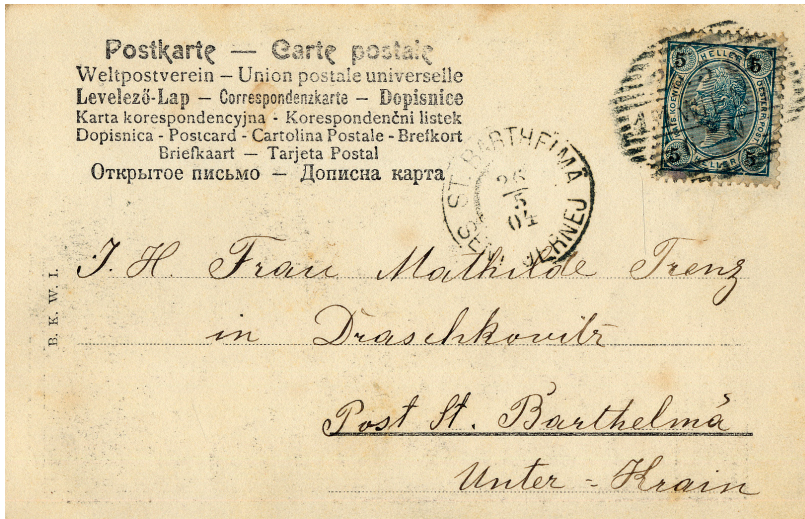 Postkarte — Carte postale
Weltpostverein – Union postale universelle
Levelező-Lap – Correspondenzkarte – Dopisnice
Karta korespondencyjna - Korespondenční listek
Dopisnica - Postcard - Cartolina Postale - Brefkort
Briefkaart — Tarjeta Postal
Открытое письмо — Дописна карта
5 HELLER 5
5 HELLER 5
ST. BARTHELMÄ
26
5
04
JERNEJ
B. K. W. I.
J. H. Frau Mathilde Trenz
in Draschkovitz
Post St. Barthelmä
Unter - Krain